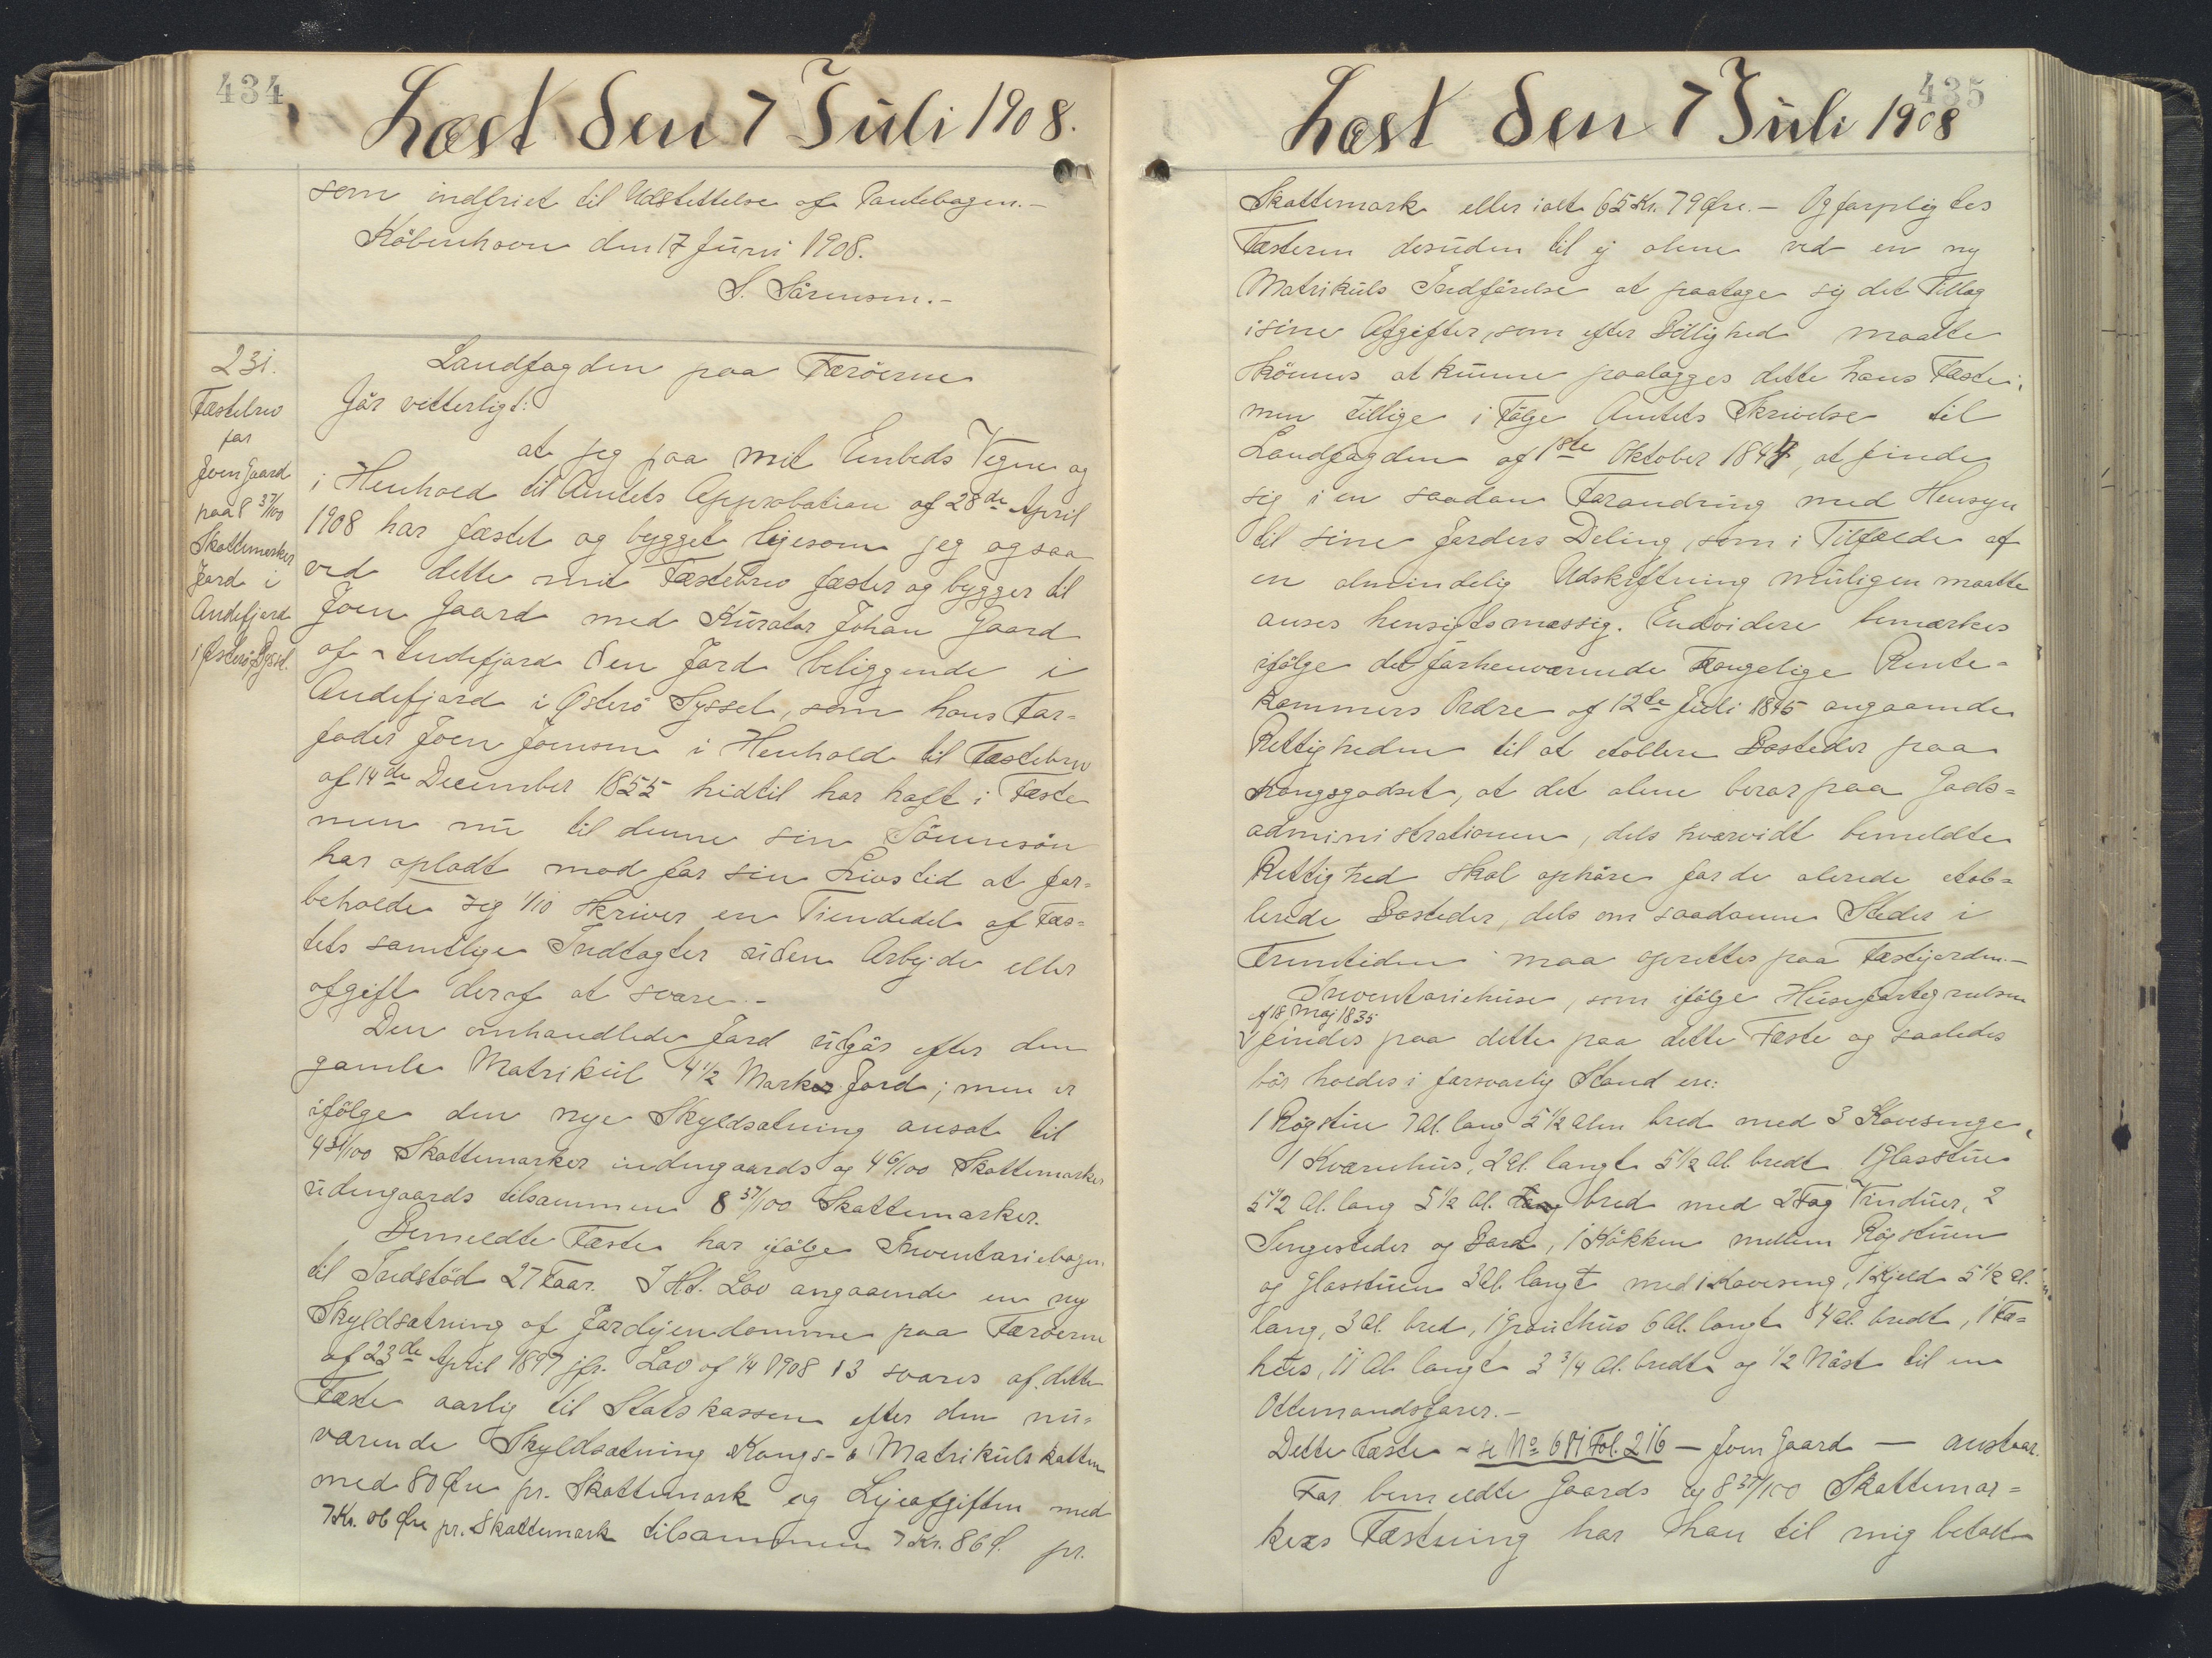 434
Læst den 7 Juli 1908.
som indfriet til Udslettelse af Pantebogen.-
København den 17 Juni 1908.
S. Sørensen.-
231.
Fæstebrev
for
Joen Gaard
paa 8 37/100
Skattemarker
Jord i
Andefjord
i Østerø Syssel.
Landfogden paa Færøerne
Gør vitterligt:
at jeg paa mit Embeds Vegne og
i Henhold til Amtets Approbation af 28de April
1908 har fæstet og bygget ligesom jeg ogsaa
ved dette mit Fæstebrev fæster og bygger til
Joen Gaard med Kurator Johan Gaard
af Andefjord den Jord beliggende i
Andefjord i Østerø Syssel, som hans Far-
fader Joen Joensen i Henhold til Fæstebrev
af 14de December 1855 hidtil har haft i Fæste
men nu til denne sin Sønnesøn
har opladt mod for sin Livstid at for-
beholde sig 1/10 skriver en Tiendedel af Fæs-
tets samtlige Indtægter uden Arbejde eller
afgift deraf at svare.-
Den omhandlede Jord udgør efter den
gamle Matrikul 4 1/2 Marker Jord; men er
ifølge den nye Skyldsætning ansat til
4 31/100 Skattemarker indengaards og 4 6/100 Skattemarker
udengaards tilsammen 8 37/100 Skattemarker.
Bemeldte Fæste har ifølge Inventariebogen
til Indstød 27 Faar. I Hht. Lov angaaende en ny
Skyldsætning af Jordejendomme paa Færøerne
af 23de April 1897 jfr. Lov af 1/4 1908 § 3 svares af dette
Fæste aarlig til Statskassen efter den nu-
værende Skyldsætning Kongs- & Matrikulskatten
med 80 Øre pr. Skattemark og Lejeafgiften med
7 Kr. 06 Øre pr. Skattemark tilsammen 7 Kr. 86 Ø. pr.
435
Læst den 7 Juli 1908
Skattemark eller ialt 65 Kr. 79 Øre.- Og forpligtes
Fæsteren desuden til ej alene ved en ny
Matrikuls Indførelse at paatage sig det Tillæg
i sine Afgifter, som efter Billighed maatte
skønnes at kunne paalægges dette hans Fæste,
men tillige i Følge Amtets Skrivelse til
Landfogden af 1ste Oktober 1844, at finde
sig i en saadan Forandring med Hensyn
til sine Jorders Deling, som i Tilfælde af
en almindelig Udskiftning muligen maatte
anses hensigtsmæssig. Endvidere bemærkes
ifølge det forhenværende kongelige Rente-
kammers Ordre af 12te Juli 1845 angaaende
Rettigheden til at etablere Bosteder paa
Kongsgodset, at det alene beror paa Gods-
administrationen, dels hvorvidt bemeldte
Rettighed skal ophøre for de alerede etab-
lerede Bosteder, dels om saadanne Steder i
Fremtiden maa oprettes paa Fæstejorden.-
Inventariehuse, som ifølge Husefortegnelsen
af 18 Maj 1835
findes paa dette paa dette Fæste og saaledes
bør holdes i forsvarlig Stand ere:
1 Røgstue 7 Al. lang 5 1/2 Alen bred med 3 Kovesenge,
1 Kværnhus, 2 Al. langt 5 1/2 Al. bredt 1 Glasstue
5 1/2 Al. lang 5 1/2 Al. bred med 2 Fag Vinduer, 2
Sengesteder og Bord, 1 Køkken mellem Røgstuen
og Glasstuen 3 Al. langt med 1 Koveseng, 1 Hjeld 5 1/2 Al.
lang, 3 Al. bred, 1 Grouthus 6 Al. langt 4 Al. bredt, 1 Fæ-
hus, 11 Al. langt 3 3/4 Al. bredt og 1/2 Nøst til en
Ottemandsfarer.-
Dette Fæste - se No 6 Fol. 216 - Joen Gaard -
For bemeldte Gaards og 8 37/100 Skattemar-
kers Fæstning har han til mig betalt